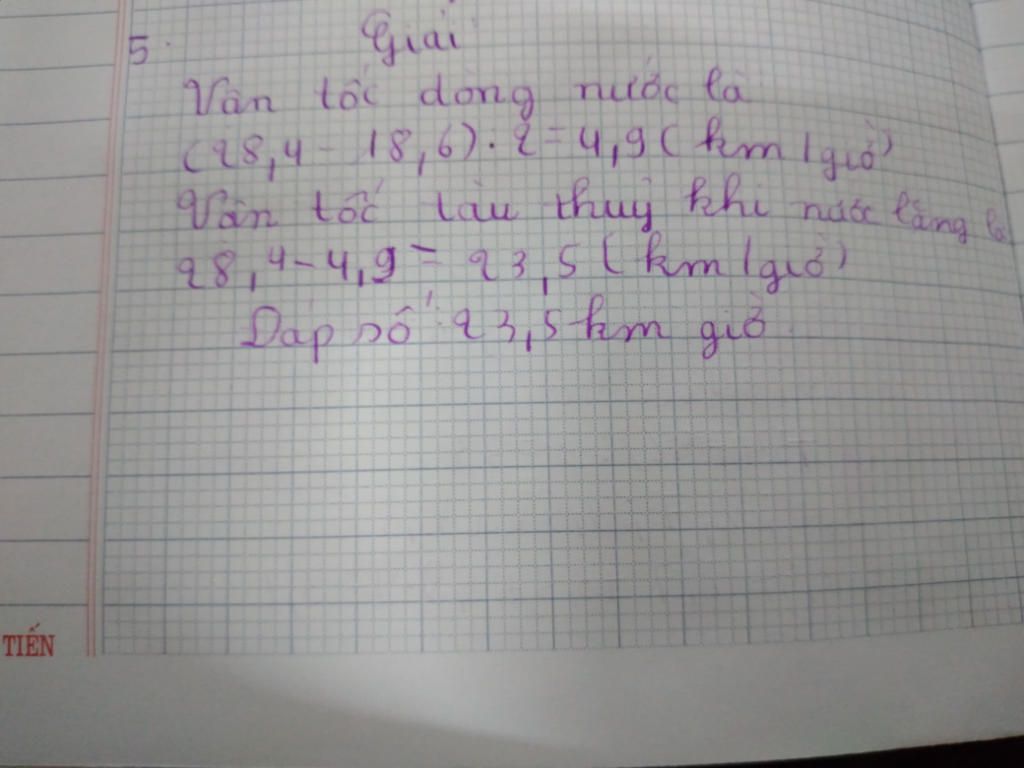 5. Giải
Vận tốc dòng nước là
(28,4 - 18,6) : 2 = 4,9 (km/giờ)
Vận tốc tàu thuỷ khi nước lặng là
28,4 - 4,9 = 23,5 (km/giờ)
Đáp số : 23,5 km giờ
TIẾN